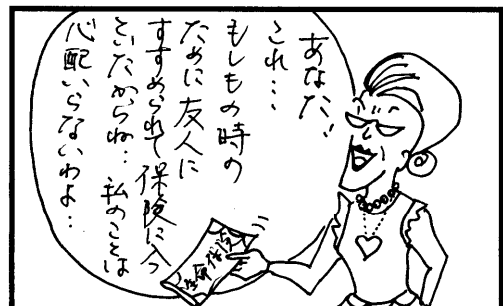 あなた、
これ…
もしもの時の
ために友人に
すすめられて保険に入っ
といたからね…私のことは
心配いらないわよ…
生命保険証書